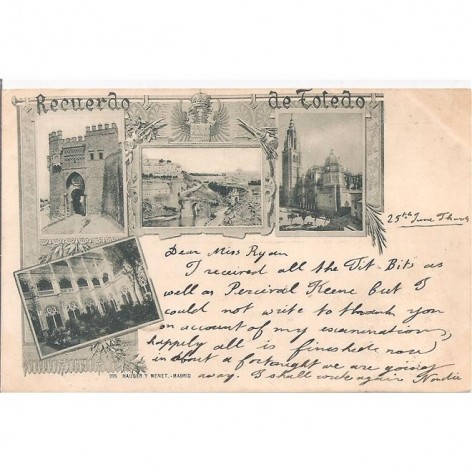 Recuerdo de Toledo
25th June Thurs
Dear Miss Ryan
I received all the Tit-Bits as
well as Percival Keene but I
could not write to thank you
on account of my examination,
happily all is finished now
in about a fortnight we are going
away. I shall write again
225 HAUSER Y MENET.-MADRID